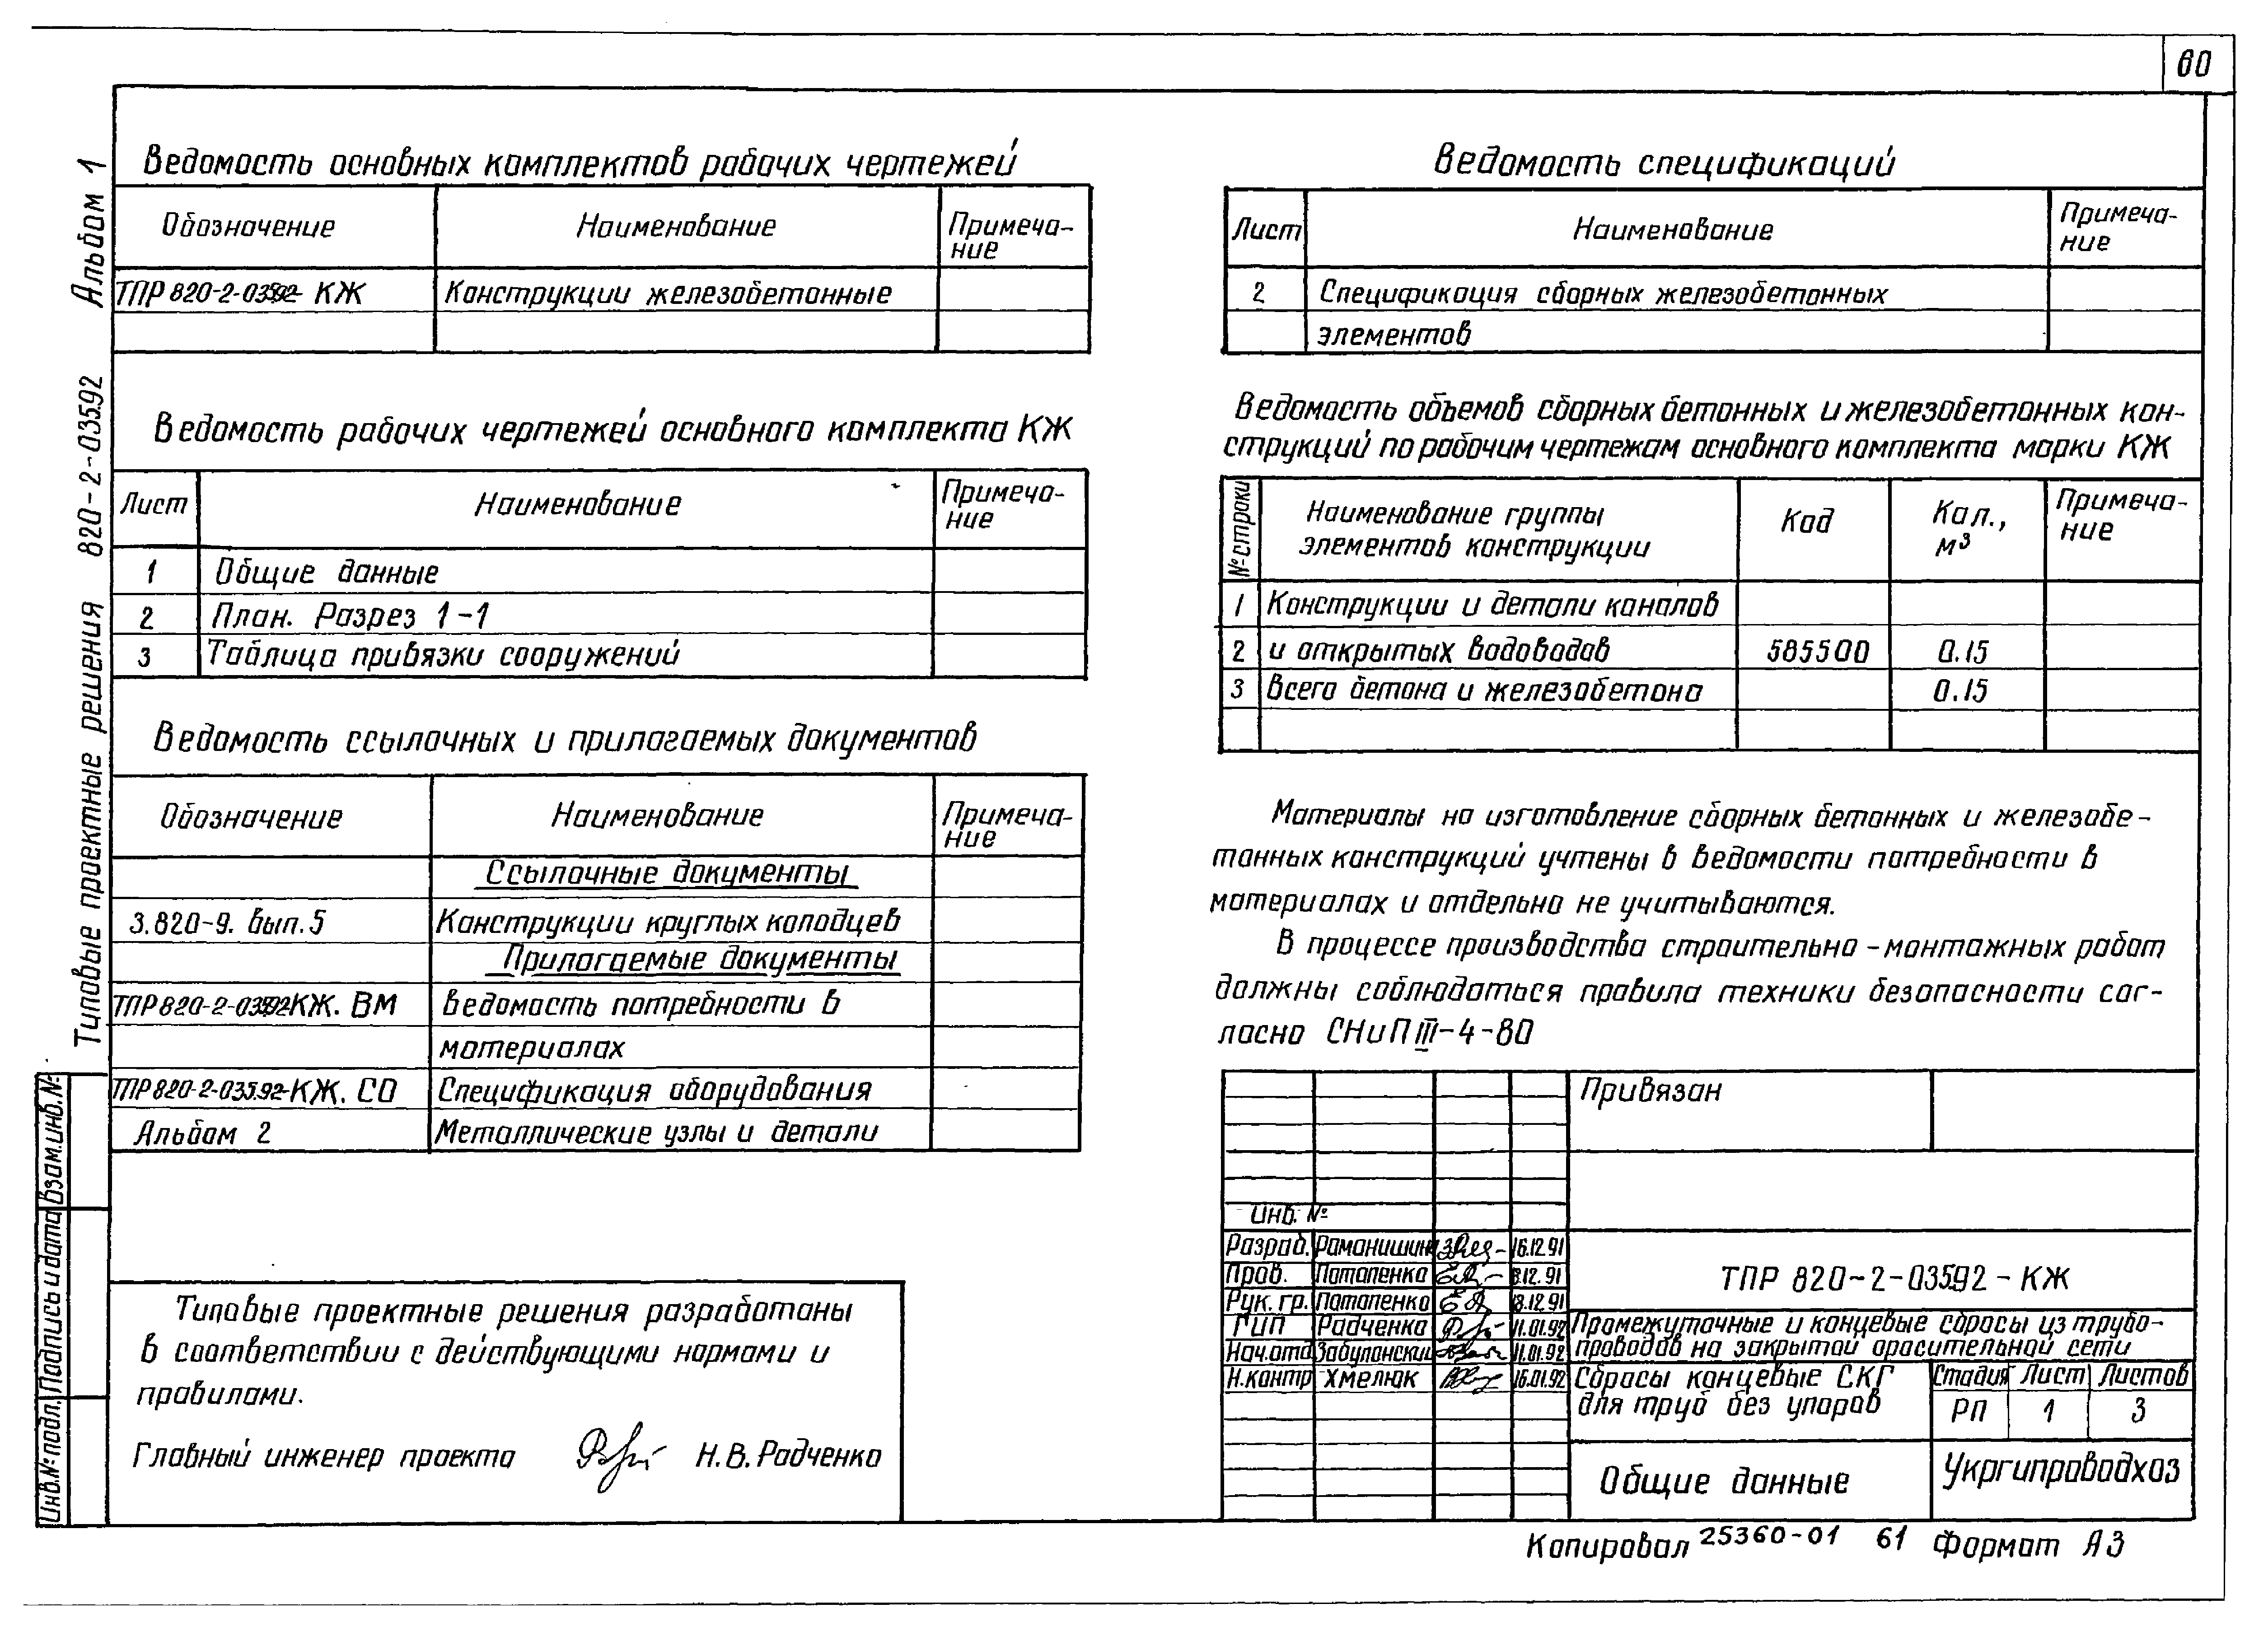 60
Альбом 1
820-2-035.92
Типовые проектные решения
Ведомость основных комплектов рабочих чертежей
Обозначение Наименование Примеча-
ние
ТПР 820-2-035.92- КЖ Конструкции железобетонные
Ведомость рабочих чертежей основного комплекта КЖ
Лист Наименование Примеча-
ние
1 Общие данные
2 План. Разрез 1-1
3 Таблица привязки сооружений
Ведомость ссылочных и прилагаемых документов
Обозначение Наименование Примеча-
ние
Ссылочные документы
3.820-9. вып.5 Конструкции круглых колодцев
Прилагаемые документы
ТПР 820-2-035.92-КЖ. ВМ Ведомость потребности в
материалах
ТПР 820-2-035.92-КЖ. СО Спецификация оборудования
Альбом 2 Металлические узлы и детали
Взам.инв.№
Подпись и дата
Инв.№ подл.
Типовые проектные решения разработаны
в соответствии с действующими нормами и
правилами.
Главный инженер проекта Н.В.Радченко
Ведомость спецификаций
Лист Наименование Примеча-
ние
2 Спецификация сборных железобетонных
элементов
Ведомость объемов сборных бетонных и железобетонных кон-
струкций по рабочим чертежам основного комплекта марки КЖ
№ строки Наименование группы
элементов конструкции Код Кол.,
м³ Примеча-
ние
1 Конструкции и детали каналов
2 и открытых водоводов 585500 0.15
3 Всего бетона и железобетона 0.15
Материалы на изготовление сборных бетонных и железобе-
тонных конструкций учтены в ведомости потребности в
материалах и отдельно не учитываются.
В процессе производства строительно-монтажных работ
должны соблюдаться правила техники безопасности сог-
ласно СНиП III-4-80
Привязан
Инв. №
Разраб. Романишин 16.12.91
Пров. Потапенко 12.91
Рук. гр. Потапенко 12.91
ГИП Радченко 11.01.92
Нач.отд Забуланский 11.01.92
Н.контр Хмелюк 16.01.92
ТПР 820-2-035.92-КЖ
Промежуточные и концевые сбросы из трубо-
проводов на закрытой оросительной сети
Сбросы концевые СКГ
для труб без упоров
Стадия Лист Листов
РП 1 3
Общие данные
Укргипроводхоз
Копировал 25360-01 61 Формат А3